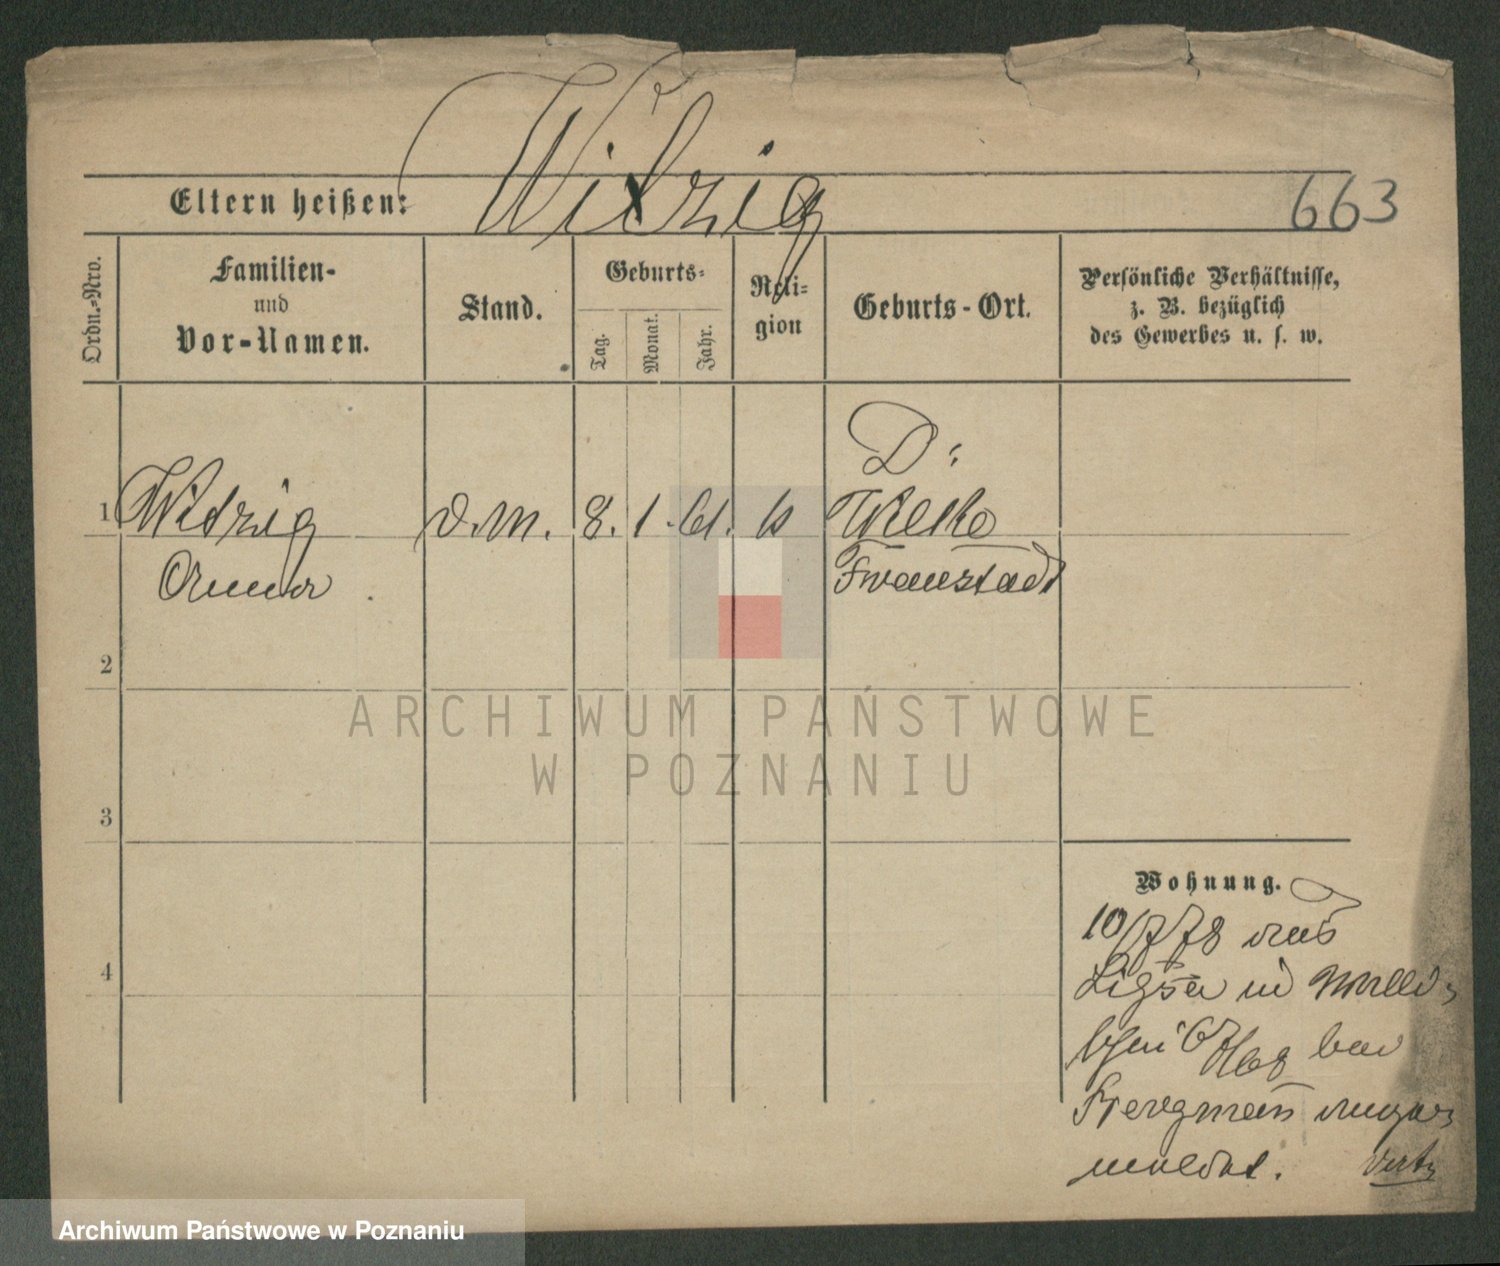 Witzig
663
Eltern heißen:
Ordn.-Nro.
Familien-
und
Vor-Namen.
Stand.
Geburts-
Tag.
Monat.
Jahr.
Reli-
gion
Geburts-Ort.
Persönliche Verhältnisse,
z. B. bezüglich
des Gewerbes u. s. w.
1
Witzig
Anna
d. M.
8.
1.
61.
k
D:
Wilke
Fraustadt
2
3
4
Wohnung.
10/7 78 aus
in
bei
Bergmann ange-
meldet.
ARCHIWUM PAŃSTWOWE
W POZNANIU
Archiwum Państwowe w Poznaniu